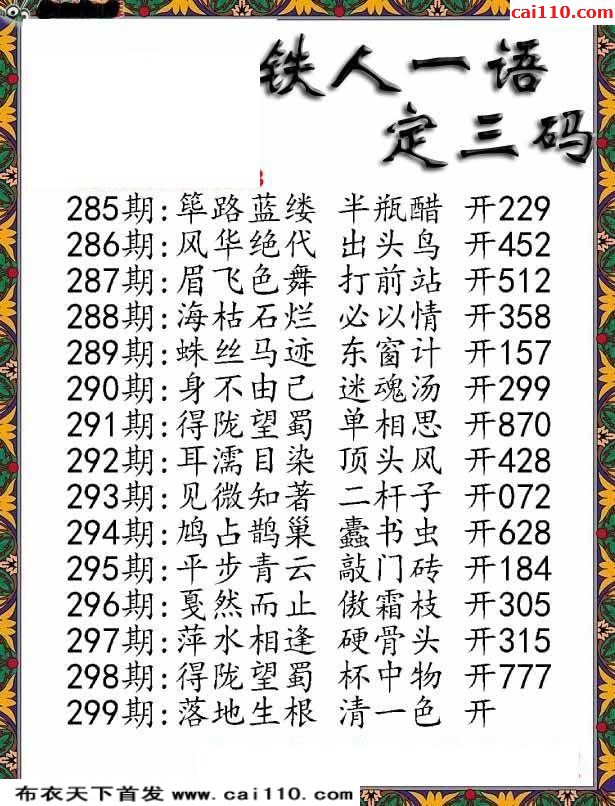 cai110.com
铁人一语
定三码
285期:筚路蓝缕 半瓶醋 开229
286期:风华绝代 出头鸟 开452
287期:眉飞色舞 打前站 开512
288期:海枯石烂 必以情 开358
289期:蛛丝马迹 东窗计 开157
290期:身不由己 迷魂汤 开299
291期:得陇望蜀 单相思 开870
292期:耳濡目染 顶头风 开428
293期:见微知著 二杆子 开072
294期:鸠占鹊巢 蠹书虫 开628
295期:平步青云 敲门砖 开184
296期:戛然而止 傲霜枝 开305
297期:萍水相逢 硬骨头 开315
298期:得陇望蜀 杯中物 开777
299期:落地生根 清一色 开
布衣天下首发 www.cai110.com